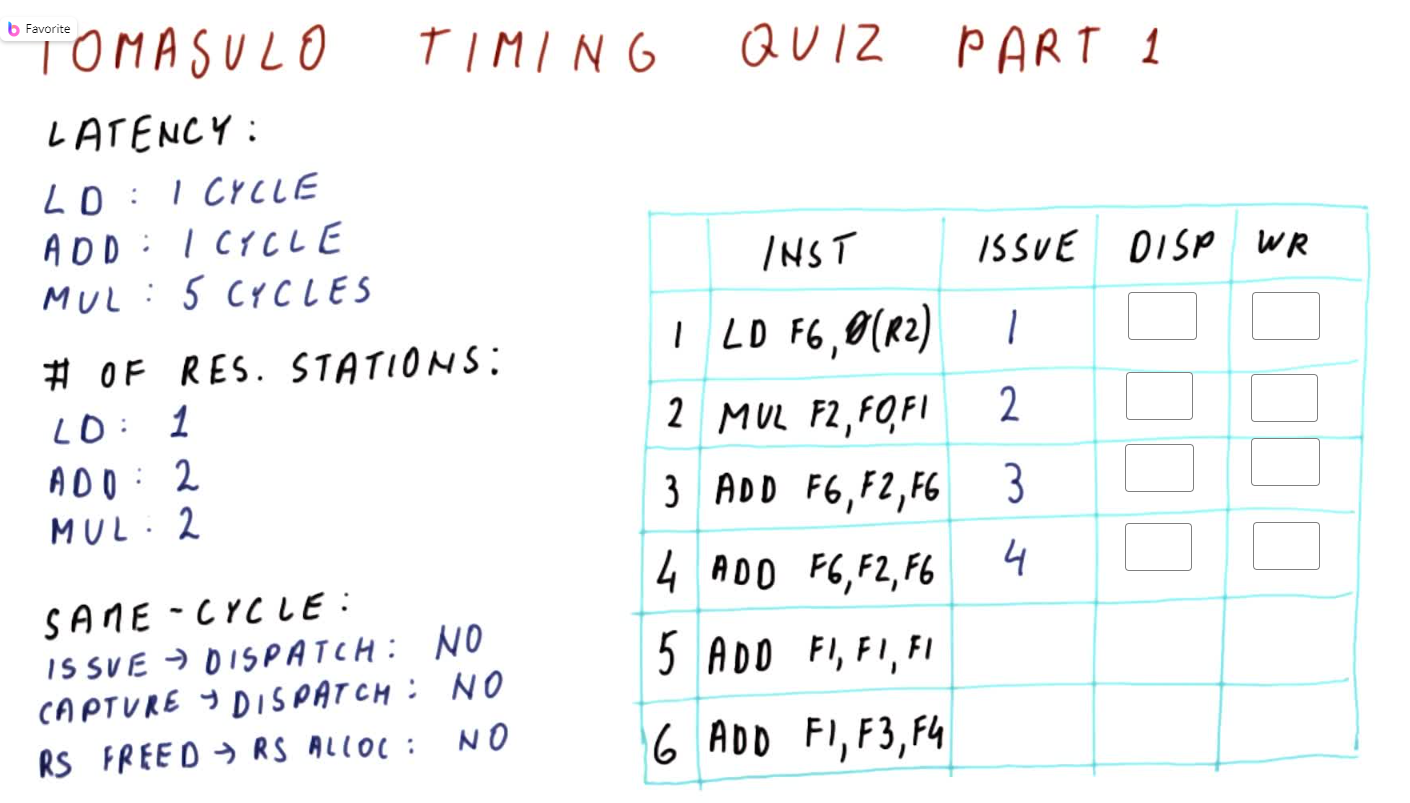 Favorite
TOMASULO TIMING QUIZ PART 1
LATENCY:
LD : 1 CYCLE
ADD : 1 CYCLE
MUL : 5 CYCLES
# OF RES. STATIONS:
LD : 1
ADD : 2
MUL : 2
SAME-CYCLE:
ISSUE → DISPATCH : NO
CAPTURE → DISPATCH : NO
RS FREED → RS ALLOC : NO
INST ISSUE DISP WR
1 LD F6, 0(R2) 1
2 MUL F2, F0, F1 2
3 ADD F6, F2, F6 3
4 ADD F6, F2, F6 4
5 ADD F1, F1, F1
6 ADD F1, F3, F4